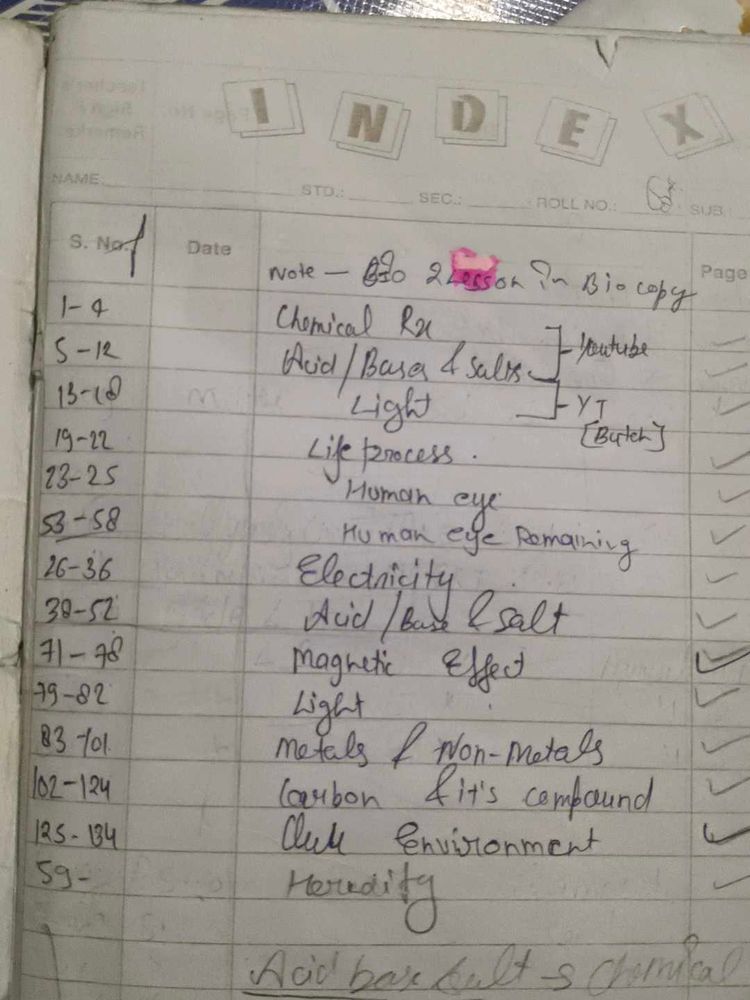 INDEX
NAME: STD.: SEC.: ROLL NO.: SUB
S. No. Date Page
Note - Bio 2 Lesson in Bio copy
1-4 Chemical Rx
Youtube
5-12 Acid/Bases & Salts
13-18 Light YT
[Batch]
19-22 Life process.
23-25 Human eye
53-58 Human eye Remaining
26-36 Electricity
38-52 Acid/Base & Salt
71-78 Magnetic Effect
79-82 Light
83-101 Metals & Non-Metals
102-124 Carbon & it's compound
125-134 Environment
59- Heredity
Acid base salt & Chemical